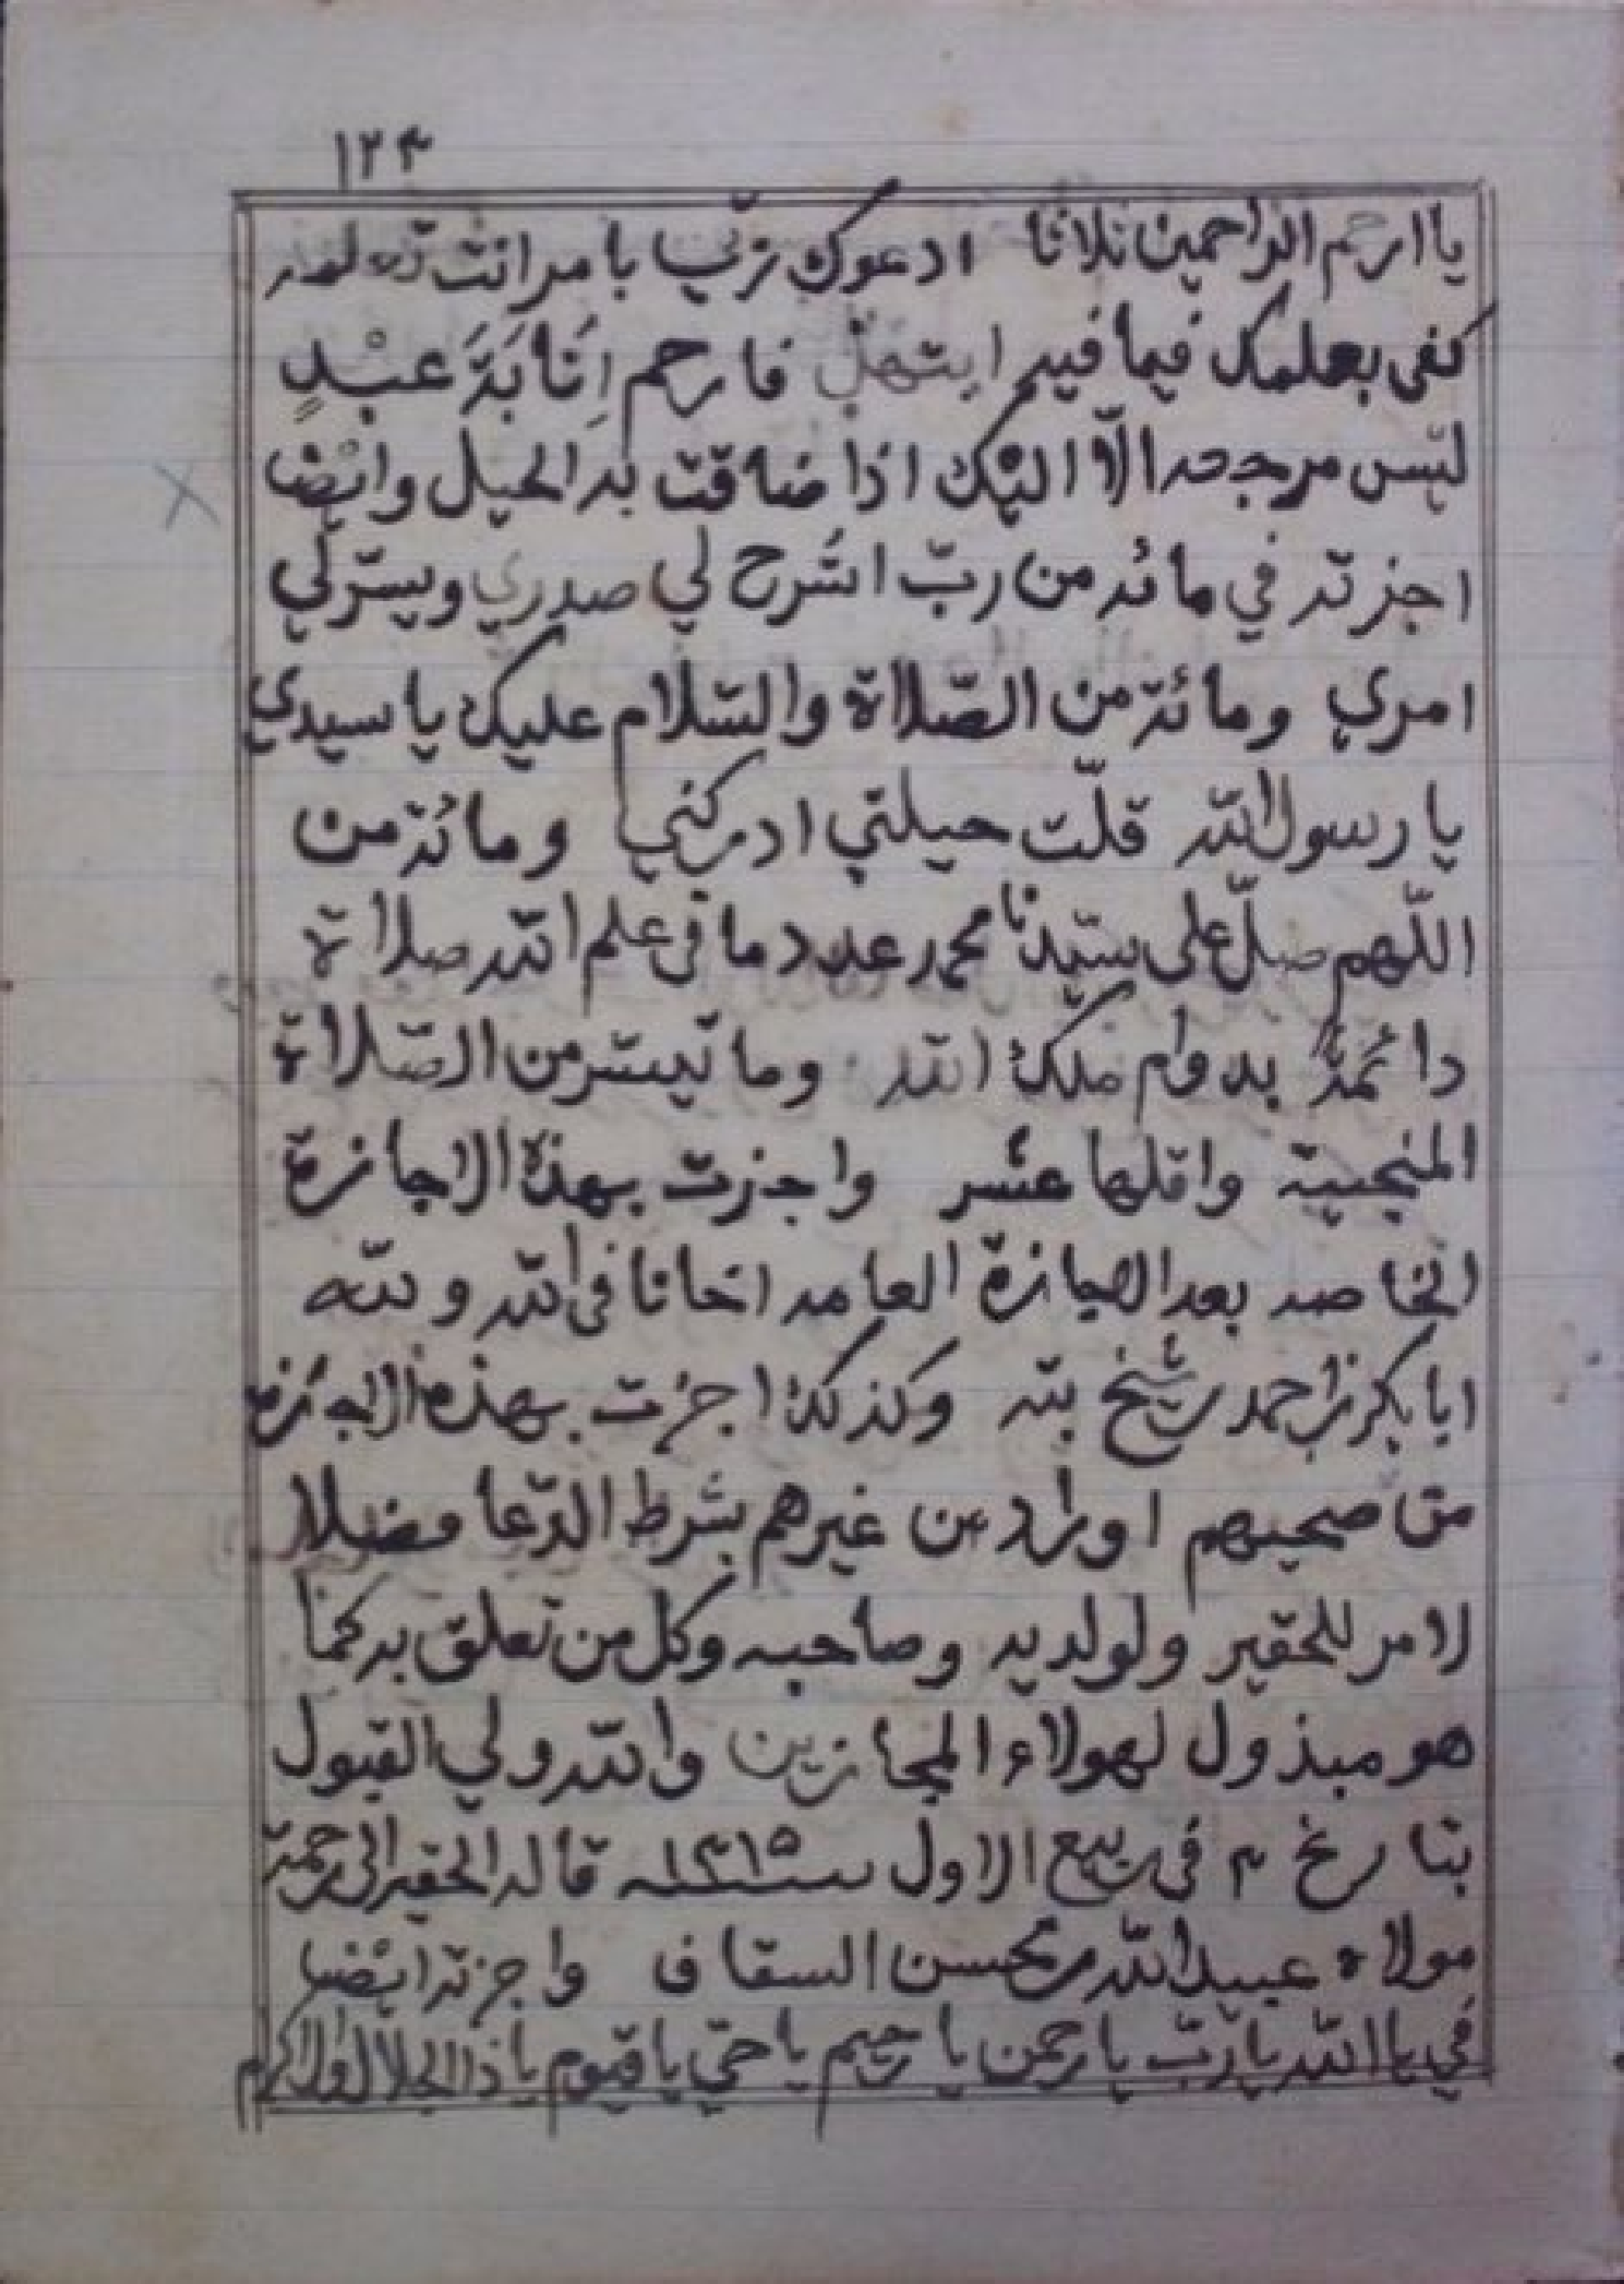 ١٢٣
يا ارحم الراحمين ثلاثا ادعوك ربّي بامر انت تعلمه
كفى بعلمك فيما فيه ابتهل فارحم إِنَابَةَ عبْدٍ
ليس مرجعه الّا اليْك اذا ضاقت به الحيل وايْضا
اجزته في مائه من ربّ اشرح لي صدري ويسّر لي
امري ومائة من الصّلاة والسّلام عليك يا سيدي
يا رسول الله قلّت حيلتي ادركني ومائة من
اللّهم صلّ على سيّدنا محمد عدد ما فى علم الله صلاة
دائمةً بدوام ملك الله وما تيسّر من الصّلاة
المنجية واقلها عشر واجزت بهذه الاجازة
الخاصه بعد الاجازة العامه اخانا فى الله ولله
ابا بكر بن احمد شيخ بته وكذلك اجزت بهذه الاجازة
من صحبهم او راد من غيرهم بشرط الدّعا فضلا
لامر للحقير ولولديه وصاحبه وكل من تعلق به كما
هو مبذول لهولاء المجازين والله ولي القبول
بتاريخ ٣ فى ربيع الاول سـ١٣١٥ـنه قاله الحقير الى رحمة
مولاه عبيد الله بن محسن السقاف واجزته ايْضا
في يا الله يا ربّ يا رحمن يا رحيم يا حيّ يا قيوم يا ذا الجلال والاكرام